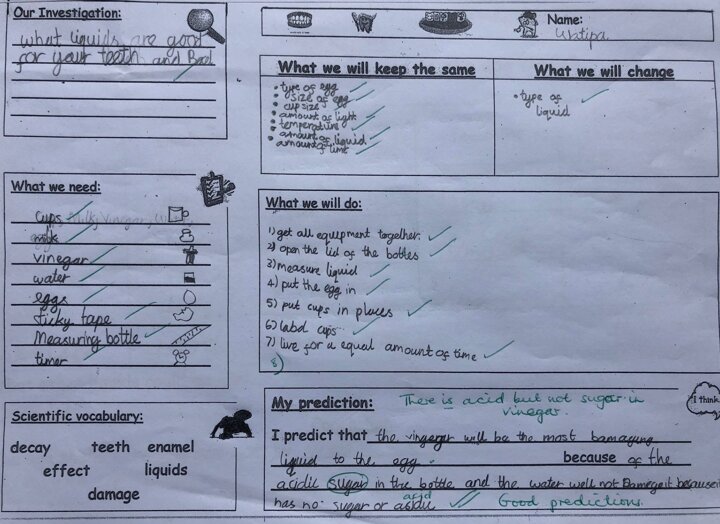 Our Investigation:
what liquids are good
for your teeth and Bad
Name:
What we will keep the same
What we will change
• type of egg
• size of egg
• cup size
• amount of light
• temperature
• amount of liquid
amount of time
• type of
liquid
What we need:
cups
milk
vinegar
water
eggs
ticky tape
Measuring bottle
timer
What we will do:
1) get all equipment together.
2) open the lid of the bottles
3) measure liquid
4) put the egg in
5) put cups in places
6) label cups
7) live for a equal amount of time
8)
Scientific vocabulary:
decay teeth enamel
effect liquids
damage
My prediction:
There is acid but not sugar in
vinegar.
I think
I predict that the vinegar will be the most bamaging
liquid to the egg. because of the
acidic sugar in the bottle and the water well not Damage it because
has no sugar or acidic
acid
Good predictions.